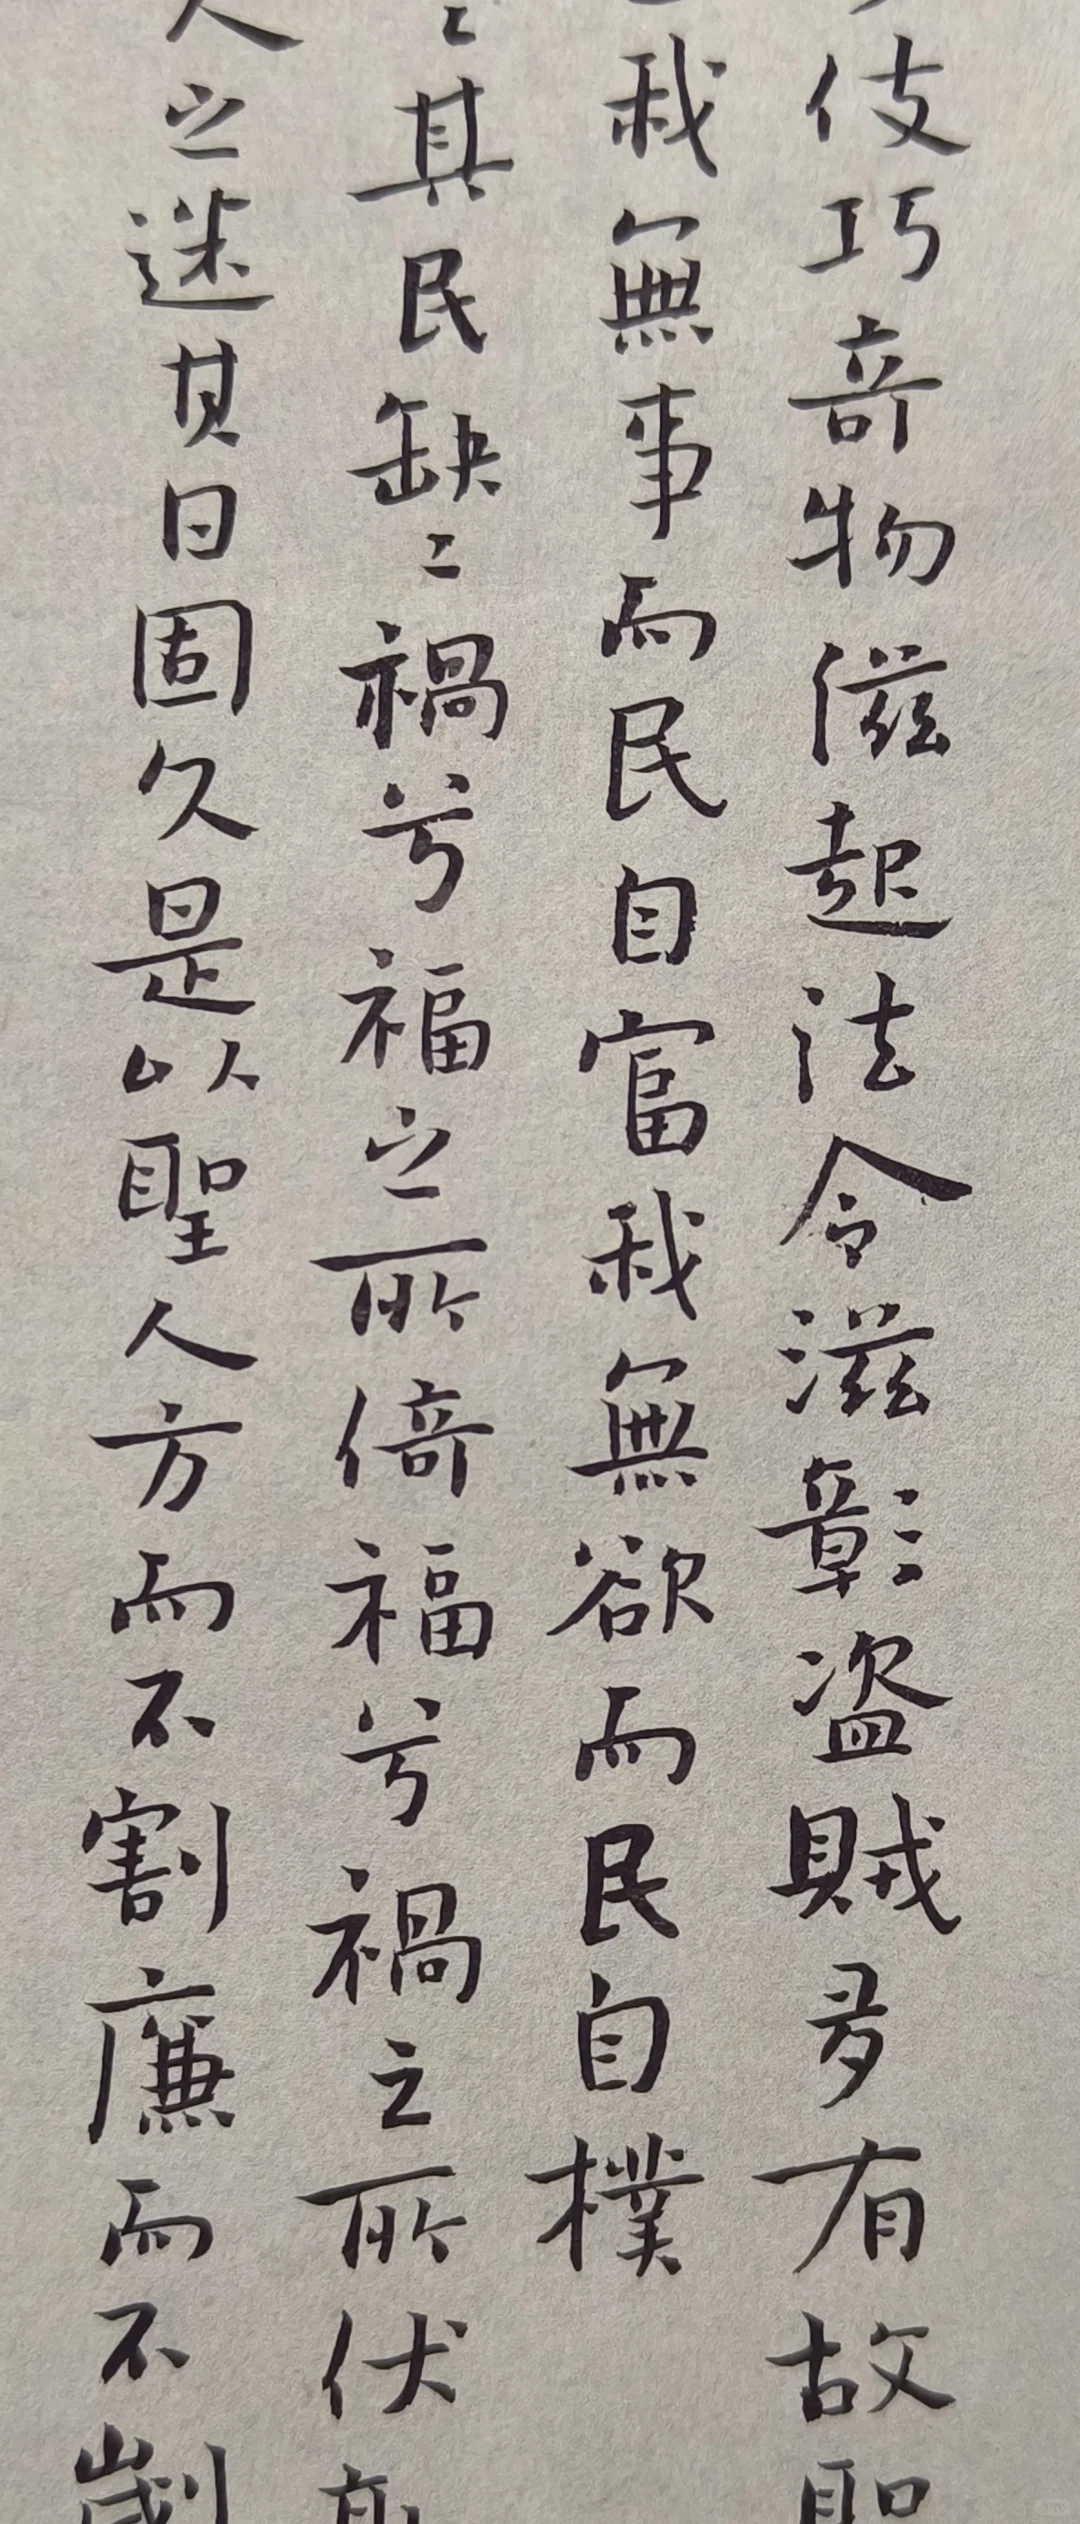 伎巧奇物滋起法令滋彰盗賊多有故聖
我無事而民自富我無欲而民自樸
其民缺〻禍兮福之所倚福兮禍之所伏孰
人之迷其日固久是以聖人方而不割廉而不劌